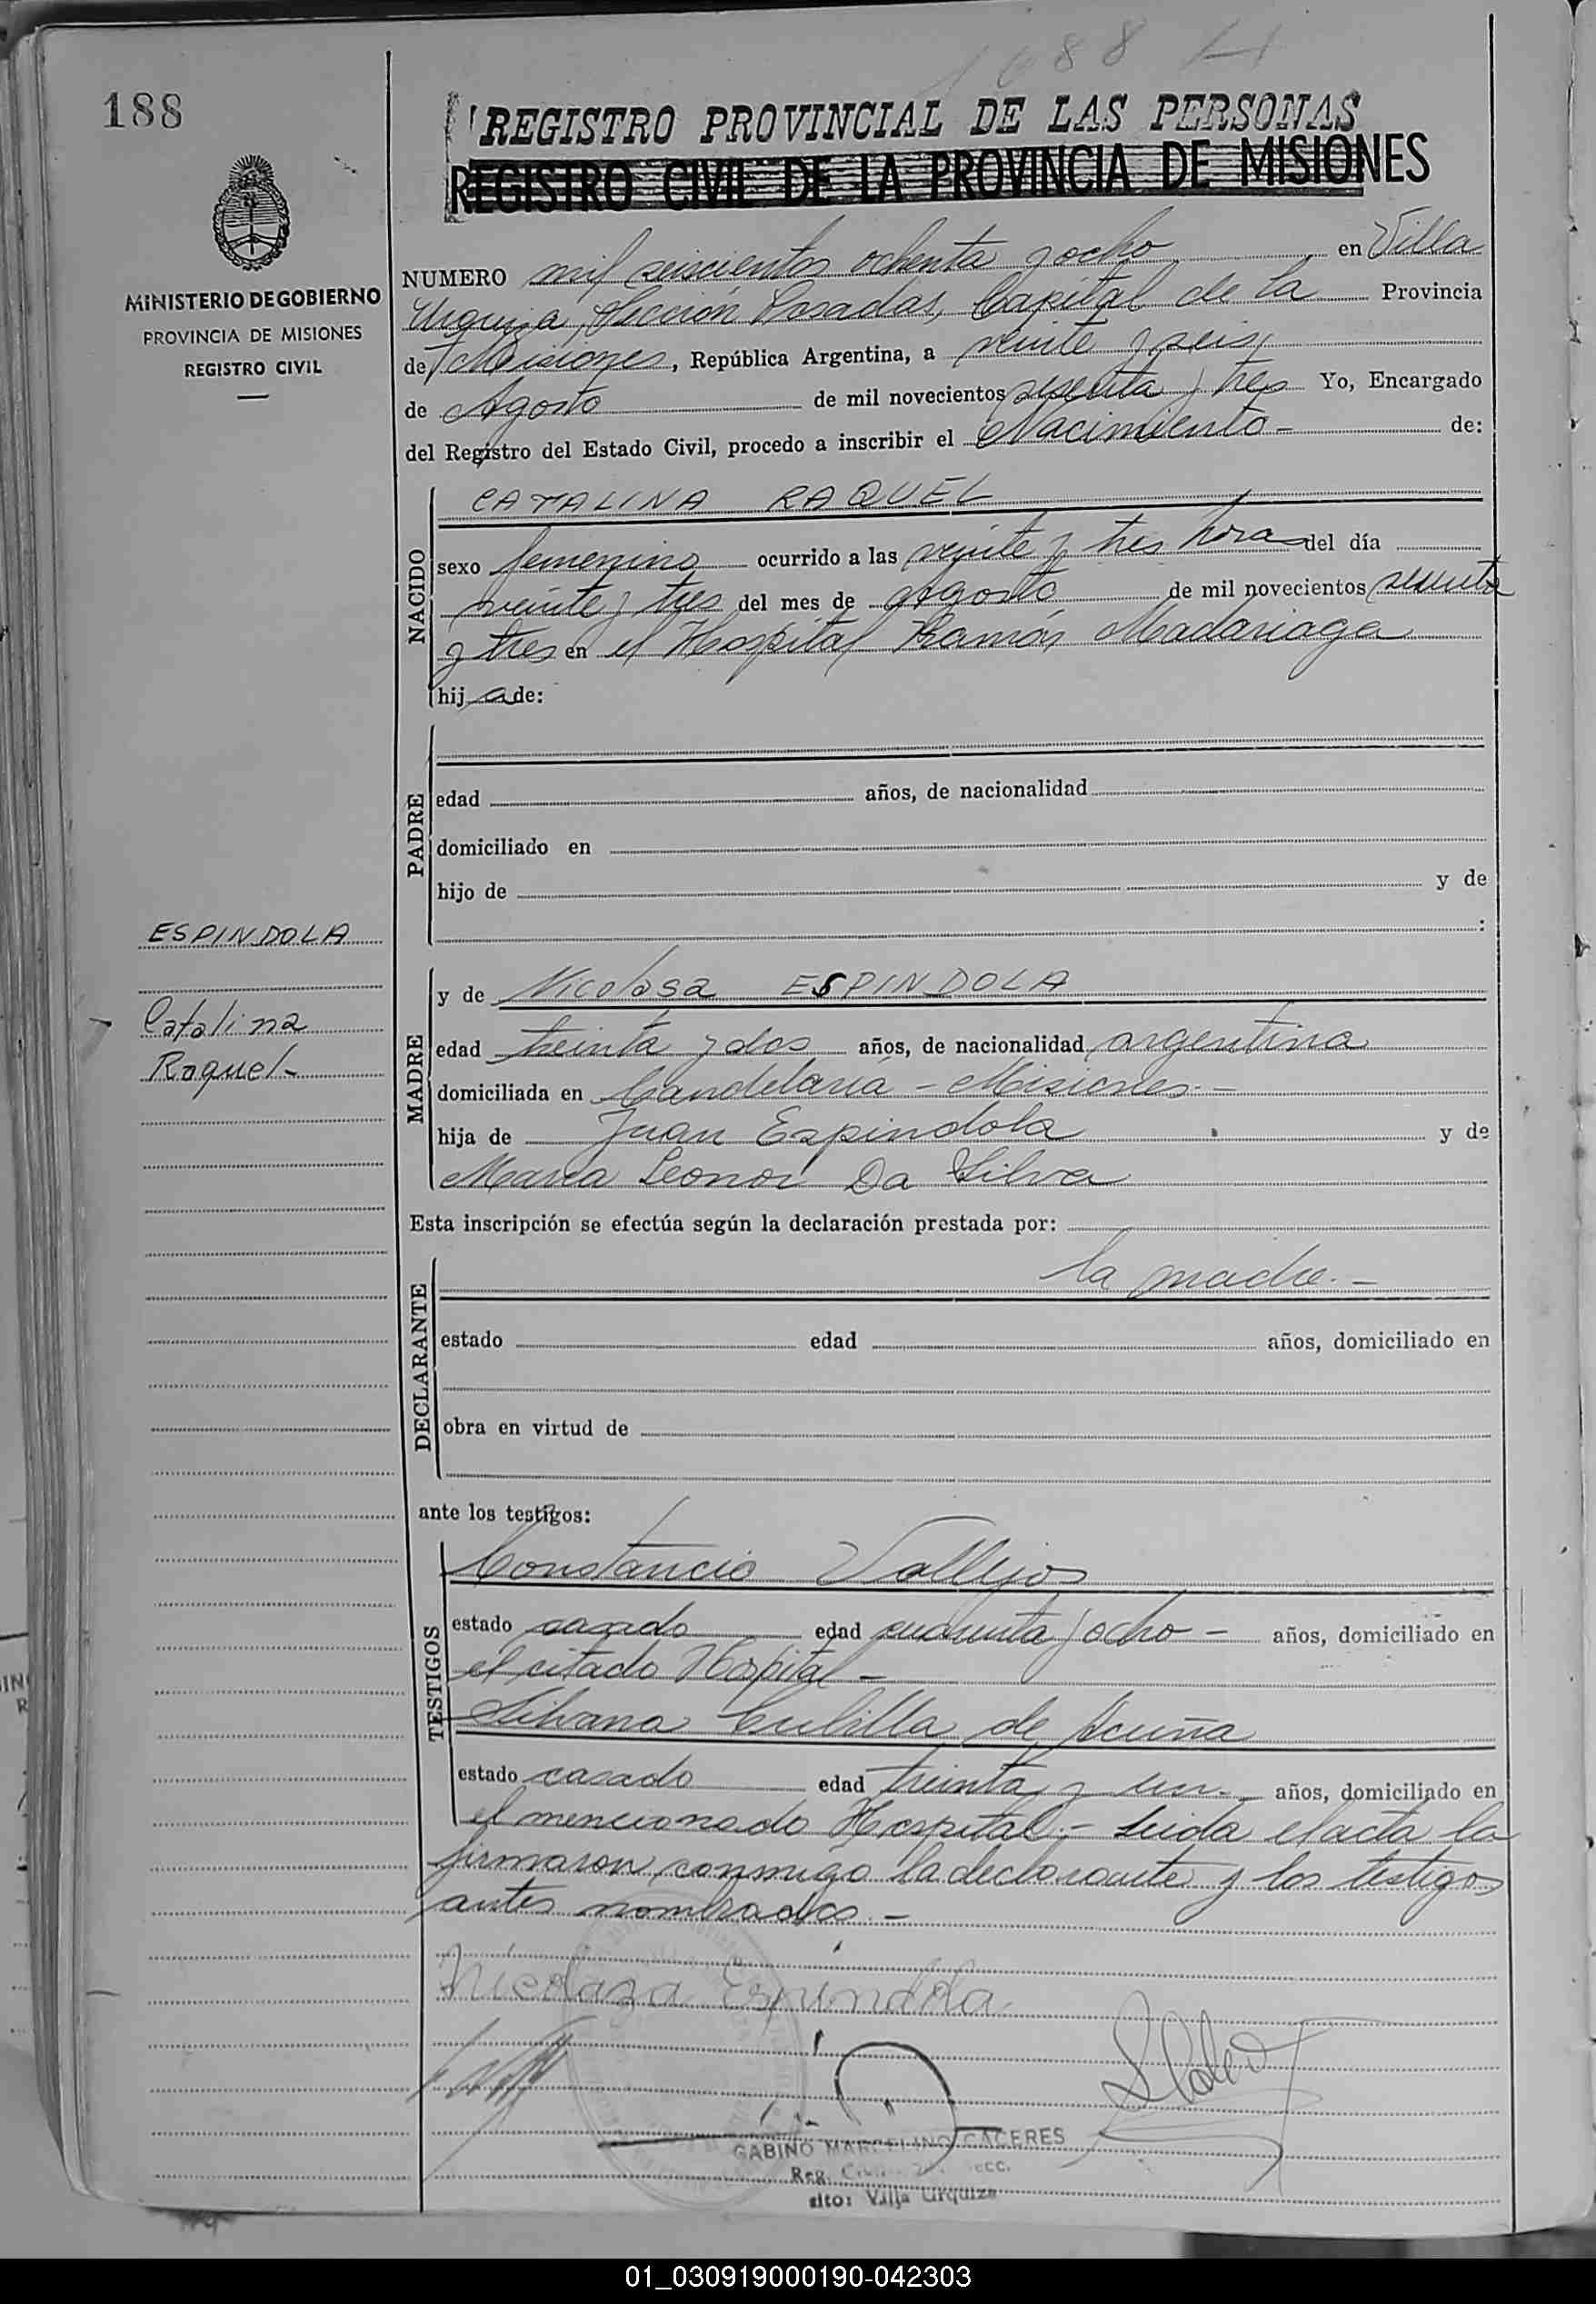 1688 H
188
REGISTRO PROVINCIAL DE LAS PERSONAS
REGISTRO CIVIL DE LA PROVINCIA DE MISIONES
MINISTERIO DE GOBIERNO
PROVINCIA DE MISIONES
REGISTRO CIVIL
NUMERO mil seiscientos ochenta y ocho en Villa
Urquiza, Sección Posadas, Capital de la Provincia
de Misiones, República Argentina, a veinte y seis
de Agosto de mil novecientos sesenta y tres Yo, Encargado
del Registro del Estado Civil, procedo a inscribir el Nacimiento - de:
NACIDO
CATALINA RAQUEL
sexo femenino ocurrido a las veinte y tres horas del día
veinte y tres del mes de agosto de mil novecientos sesenta
y tres en el Hospital Ramón Madariaga
hij a de:
PADRE
edad años, de nacionalidad
domiciliado en
hijo de y de
:
ESPINDOLA
Catalina
Raquel-
MADRE
y de Nicolasa ESPINDOLA
edad treinta y dos años, de nacionalidad argentina
domiciliada en Candelaria - Misiones.-
hija de Juan Espindola y de
Maria Leonor Da Silva
Esta inscripción se efectúa según la declaración prestada por:
DECLARANTE
la madre.-
estado edad años, domiciliado en
obra en virtud de
ante los testigos:
TESTIGOS
Constancio Vallejos
estado casado edad cuarenta y ocho - años, domiciliado en
el citado Hospital -
Silvana Cubilla de Acuña
estado casado edad treinta y un.- años, domiciliado en
el mencionado Hospital.- Leida el acta la
firmaron conmigo la declarante y los testigos
antes nombrados.-
Nicolaza Espindola
GABINO MARCELINO CACERES
Reg. Secc.
sito: Villa Urquiza
01_030919000190-042303